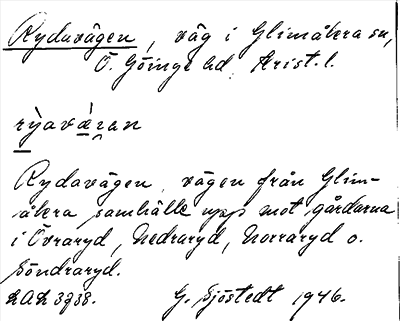 Rydavägen, väg i Glimåkra sn,
Ö. Göinge hd, Krist. l.
rỳavä̀ran
Rydavägen, vägen från Glim-
åkra samhälle upp mot gårdarna
i Övraryd, Nedraryd, Norraryd o.
Söndraryd.
LAL 3738. G. Sjöstedt 1946.